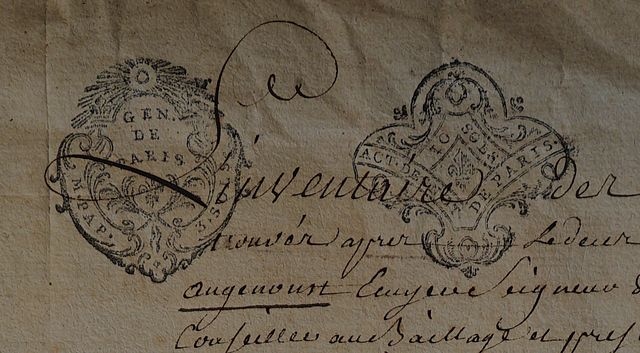 GEN.
DE
PARIS
M.PAP.
3.S.
ACT. DE
NO
3SOLS
DE PARIS.
inventaire des
trouvés apres Le deces
angenoust Escuyer Seigneur
Conseiller au Baillage et pres